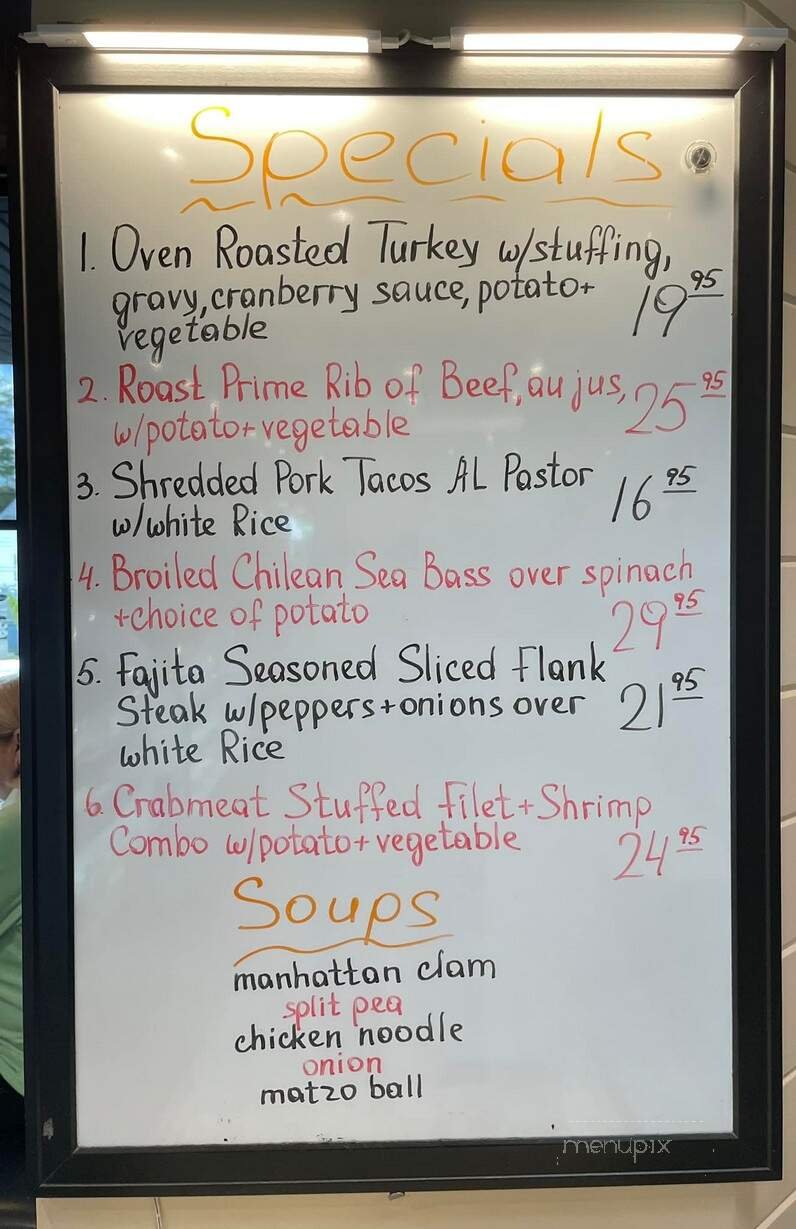 Specials
1. Oven Roasted Turkey w/stuffing,
gravy, cranberry sauce, potato+
vegetable 19 95
2. Roast Prime Rib of Beef, au jus,
w/potato+vegetable 25 95
3. Shredded Pork Tacos AL Pastor
w/white Rice 16 95
4. Broiled Chilean Sea Bass over spinach
+choice of potato 29 95
5. Fajita Seasoned Sliced Flank
Steak w/peppers+onions over
white Rice 21 95
6. Crabmeat Stuffed Filet+Shrimp
Combo w/potato+vegetable 24 95
Soups
manhattan clam
split pea
chicken noodle
onion
matzo ball
menupix